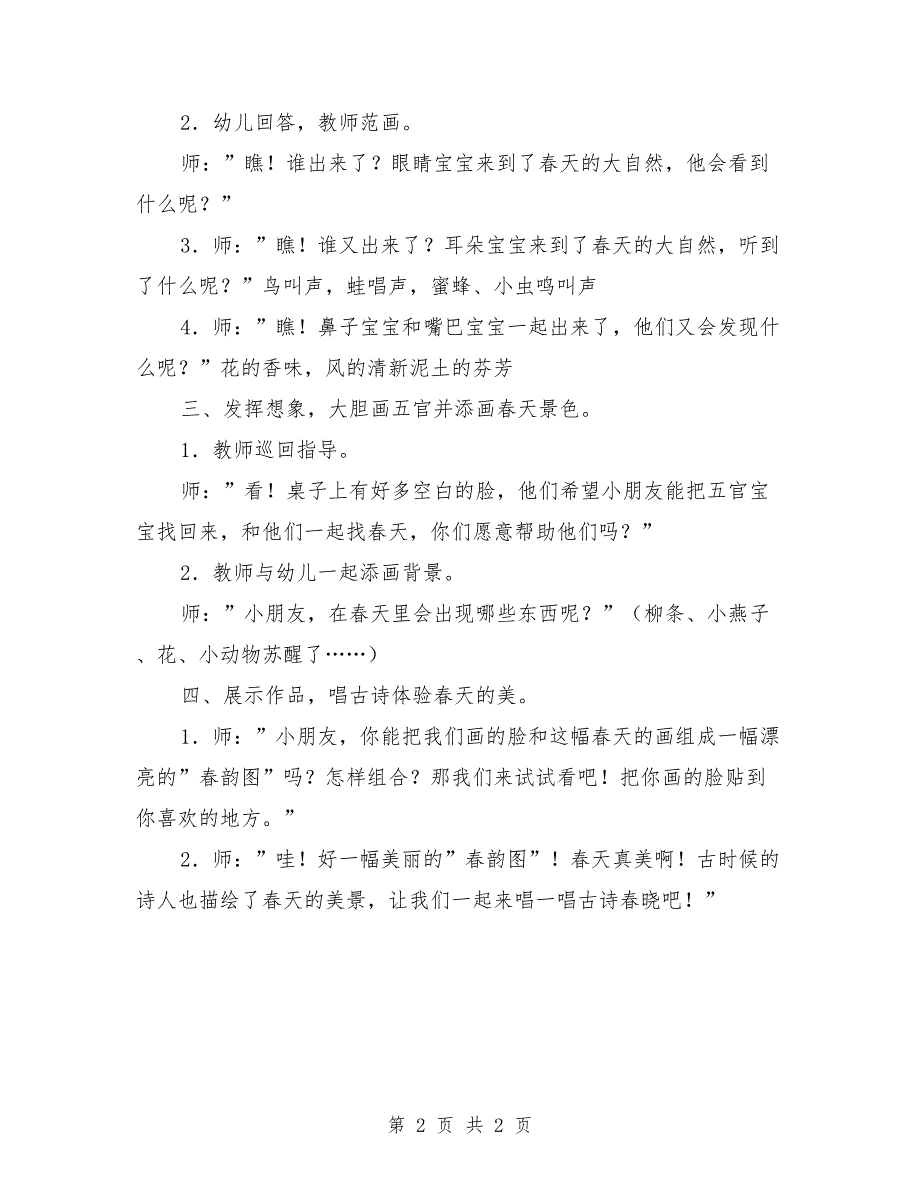 2．幼儿回答，教师范画。
师：”瞧！谁出来了？眼睛宝宝来到了春天的大自然，他会看到
什么呢？”
3．师：”瞧！谁又出来了？耳朵宝宝来到了春天的大自然，听到
了什么呢？”鸟叫声，蛙唱声，蜜蜂、小虫鸣叫声
4．师：”瞧！鼻子宝宝和嘴巴宝宝一起出来了，他们又会发现什
么呢？”花的香味，风的清新泥土的芬芳
三、发挥想象，大胆画五官并添画春天景色。
1．教师巡回指导。
师：”看！桌子上有好多空白的脸，他们希望小朋友能把五官宝
宝找回来，和他们一起找春天，你们愿意帮助他们吗？”
2．教师与幼儿一起添画背景。
师：”小朋友，在春天里会出现哪些东西呢？”（柳条、小燕子
、花、小动物苏醒了……）
四、展示作品，唱古诗体验春天的美。
1．师：”小朋友，你能把我们画的脸和这幅春天的画组成一幅漂
亮的”春韵图”吗？怎样组合？那我们来试试看吧！把你画的脸贴到
你喜欢的地方。”
2．师：”哇！好一幅美丽的”春韵图”！春天真美啊！古时候的
诗人也描绘了春天的美景，让我们一起来唱一唱古诗春晓吧！”
第 2 页 共 2 页